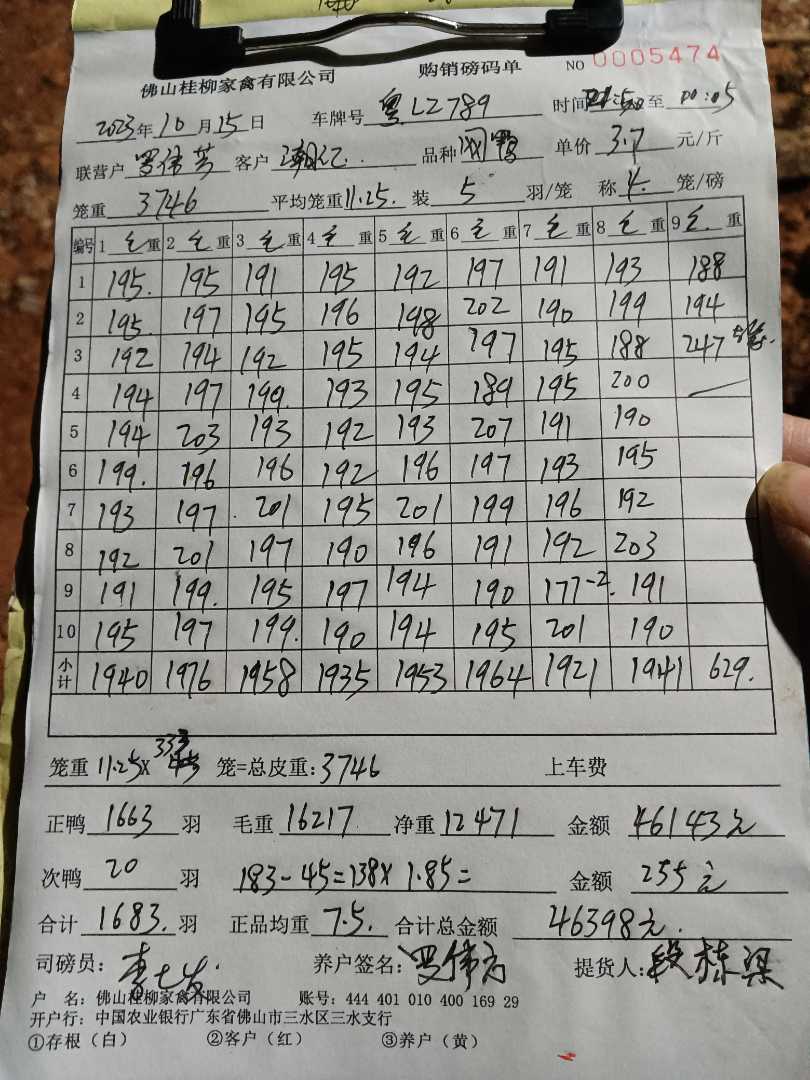 佛山桂柳家禽有限公司 购销磅码单 NO 0005474
2023年10月15日 车牌号 粤LZ789 时间 至 00:05
联营户 罗伟芳 客户 品种 单价 3.7 元/斤
笼重 3746 平均笼重 11.25. 装 5 羽/笼 称 4. 笼/磅
编号 1 毛 重 2 毛 重 3 毛 重 4 毛 重 5 毛 重 6 毛 重 7 毛 重 8 毛 重 9 毛. 重
1 195. 195 191 195 192 197 191 193 188
2 195. 197 195 196 198 202 190 199 194
3 192 194 192 195 194 197 195 188 247
4 194 197 199. 193 195 189 195 200 —
5 194 203 193 192 193 207 191 190
6 199. 196 196 192 196 197 193 195
7 193 197 . 201 195 201 199 196 192
8 192 201 197 190 196 191 192 203
9 191 199. 195 197 194 190 177-2. 191
10 195 197 199. 190 194 195 201 190
小计 1940 1976 1958 1935 1953 1964 1921 1941 629.
笼重 11.25X 333 笼=总皮重: 3746 上车费
正鸭 1663 羽 毛重 16217 净重 12471 金额 46143元
次鸭 20 羽 183-45=138X 1.85= 金额 255元
合计 1683. 羽 正品均重 7.5. 合计总金额 46398元.
司磅员: 养户签名: 罗伟芳 提货人: 段栋梁
户 名: 佛山桂柳家禽有限公司 账号: 444 401 010 400 169 29
开户行: 中国农业银行广东省佛山市三水区三水支行
①存根（白） ②客户（红） ③养户（黄）